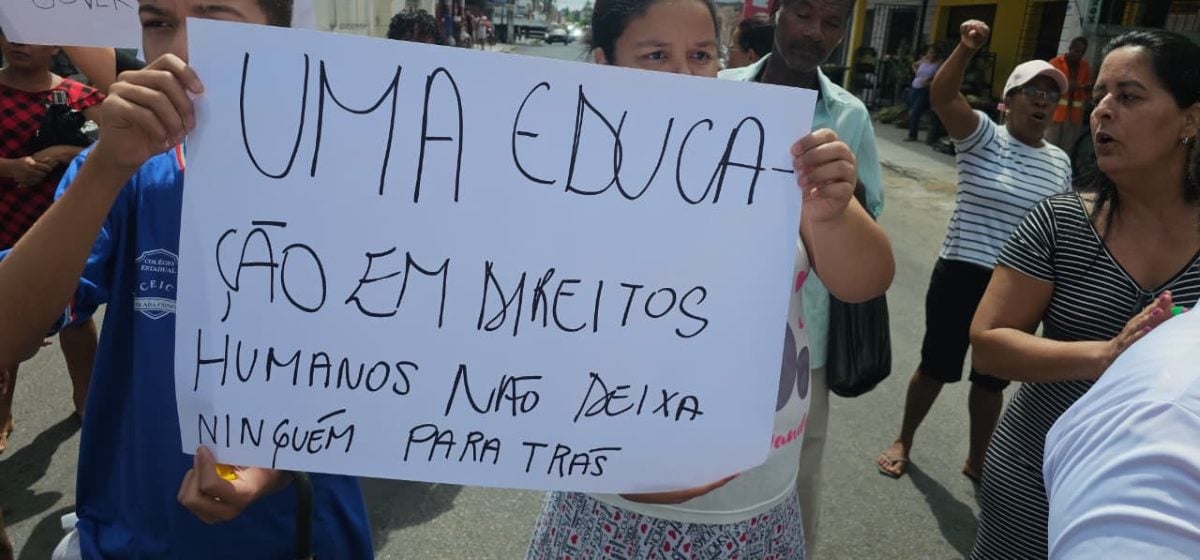 GOVER
UMA EDUCA-
ÇÃO EM DIREITOS
HUMANOS NÃO DEIXA
NINGUÉM PARA TRÁS
COLÉGIO
ESTADUAL
CEIC